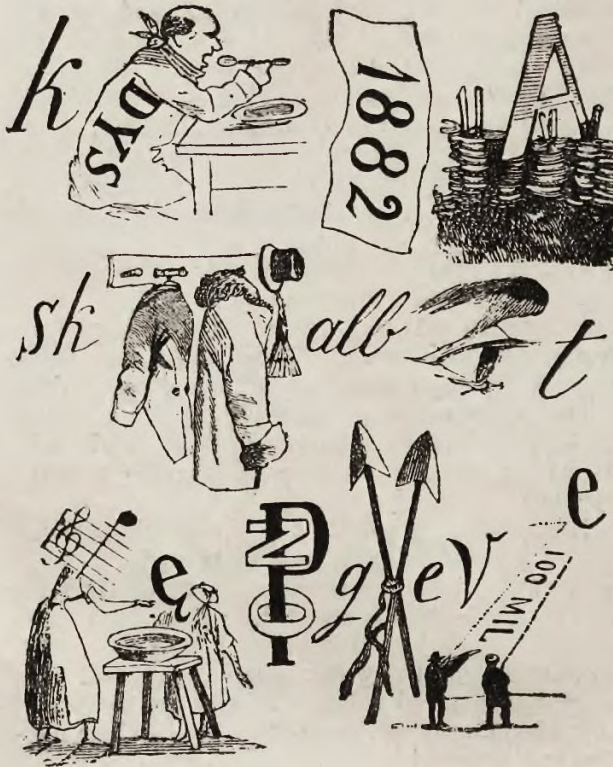 k DYS 1882 A
sk alb t
ę P N O I g ev e
100 MIL